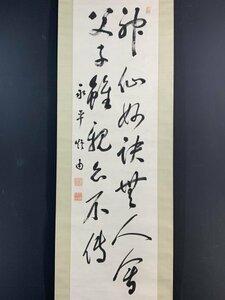 神仙妙訣無人會
父子雖親亦不傳
永平悟由